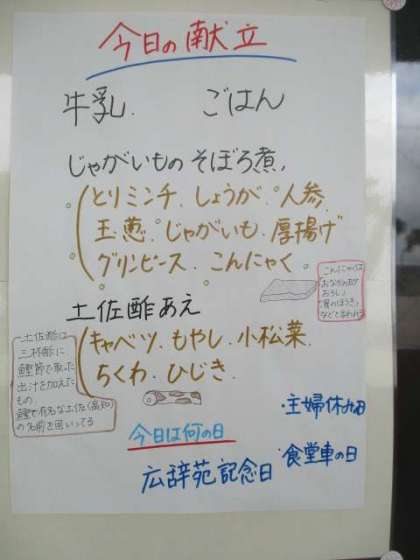 今日の献立
牛乳. ごはん
じゃがいものそぼろ煮.
とりミンチ. しょうが. 人参.
玉葱. じゃがいも. 厚揚げ
グリンピース. こんにゃく
こんにゃくは
おなかの砂
おろし」
「胃のほうき」
などと言われる
土佐酢あえ
キャベツ. もやし. 小松菜.
ちくわ. ひじき.
土佐酢は
三杯酢に
鰹節で取った
出汁を加えた
もの
鰹で有名な土佐(高知)
の名前を用いてる
今日は何の日
・主婦休みの日
広辞苑記念日
・食堂車の日